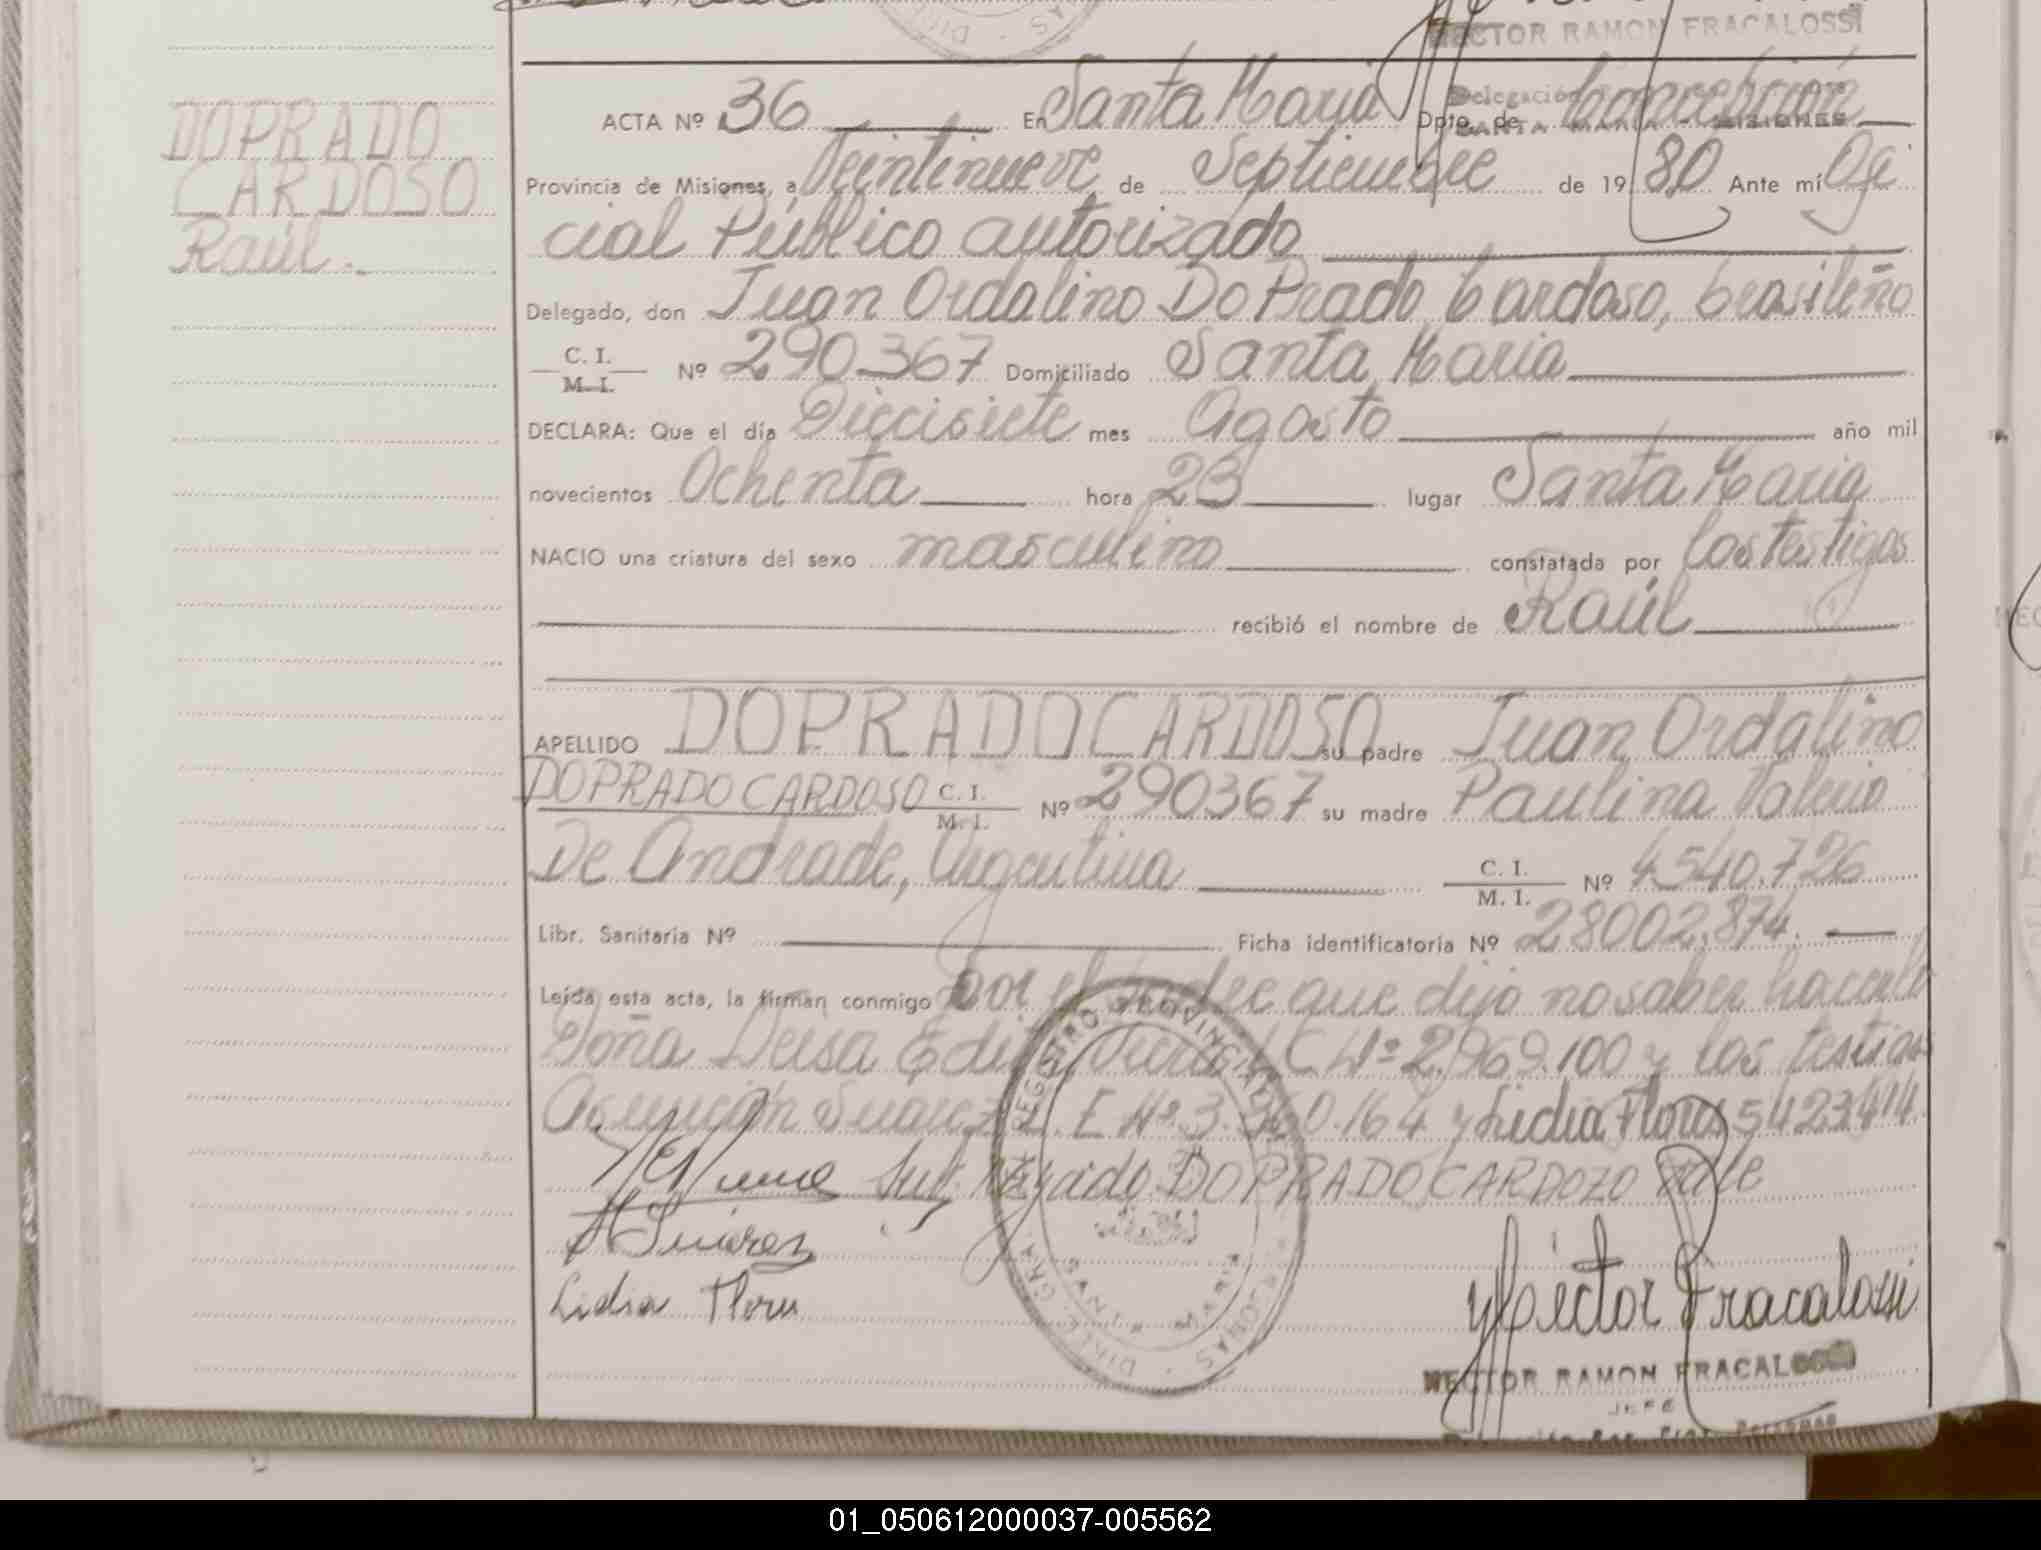 HECTOR RAMON FRACALOSSI
DOPRADO
CARDOSO
Raúl.
ACTA Nº 36 En Santa Maria Dpto. de Concepción
Delegación
SANTA MARIA - MISIONES
Provincia de Misiones, a Veintinueve de Septiembre de 1980 Ante mí Ofi
cial Público autorizado
Delegado, don Juan Ordalino Do Prado Cardoso, brasileño
C. I.
M. I. Nº 290367 Domiciliado Santa Maria
DECLARA: Que el día Diecisiete mes Agosto año mil
novecientos Ochenta hora 23 lugar Santa Maria
NACIO una criatura del sexo masculino constatada por los testigos
recibió el nombre de Raúl
APELLIDO DOPRADO CARDOSO su padre Juan Ordalino
DOPRADO CARDOSO C. I.
M. I. Nº 290367 su madre Paulina Valerio
De Andrade, Argentina C. I.
M. I. Nº 4540.726
Libr. Sanitaria Nº Ficha identificatoria Nº 28002.874.
Leída esta acta, la firman conmigo Por el padre que dijo no saber hacerlo
Doña Deisa C Nº 2.969.100 y los testigos
Asunción Suarez L. E Nº 3.360.164 y Lidia Flores 5423414
DO PRADO CARDOZO Vale
A Suárez
Lidia Flores
REGISTRO PROVINCIAL
SANTA MARIA
Héctor Fracalossi
HECTOR RAMON FRACALOSSI
JEFE
01_050612000037-005562